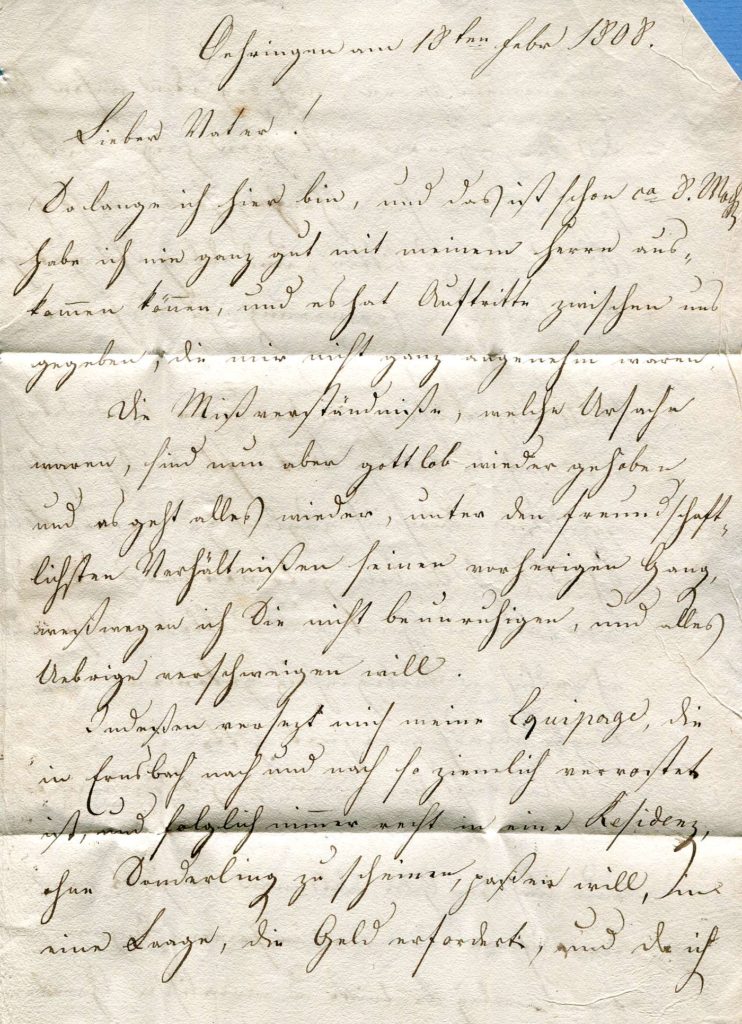 Oehringen am 18ten Febr 1808.
Lieber Vater!
So lange ich hier bin, und das ist schon ca 8. Woch
habe ich nie ganz gut mit meinem Herrn aus-
kommen können, und es hat Auftritte zwischen uns
gegeben, die mir nicht ganz angenehm waren.
Die Mißverständniße, welche Ursache
waren, sind nun aber gottlob wieder gehoben
und es geht alles wieder, unter den freundschaft-
lichsten Verhältnißen seinen vorherigen Gang,
weßwegen ich Sie nicht beunruhigen, und alles
Uebrige verschweigen will.
Indeßen versezt mich meine Equipage, die
in Ernsbach nach und nach so ziemlich verrostet
ist, und folglich nimmer recht in eine Residenz,
ohne Sonderling zu scheinen, paßen will, in
eine Laage, die Geld erfordert, und da ich